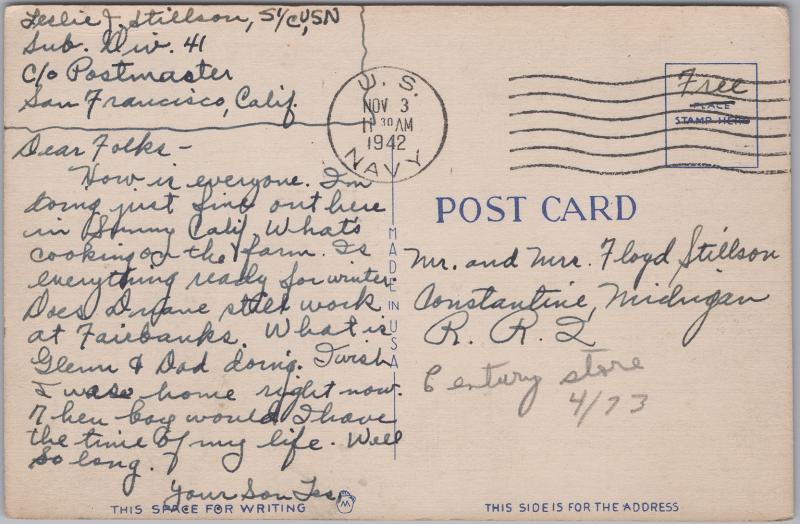 Leslie J. Stillson, S1/C, USN
Sub. Div. 41
C/o Postmaster
San Francisco, Calif.
Dear Folks –
How is everyone. I'm
doing just fine out here
in Sunny Calif. What's
cooking on the farm. Is
everything ready for winter.
Does Duane still work
at Fairbanks. What is
Glenn & Dad doing. I wish
I was home right now.
Then boy would I have
the time of my life. Well
So long.
Your Son Les,
THIS SPACE FOR WRITING
M
U. S.
NOV 3
11 30 AM
1942
NAVY
Free
PLACE
STAMP HERE
MADE IN USA
POST CARD
Mr. and Mrs. Floyd Stillson
Constantine, Michigan
R. R. 2
Century store
4/73
THIS SIDE IS FOR THE ADDRESS